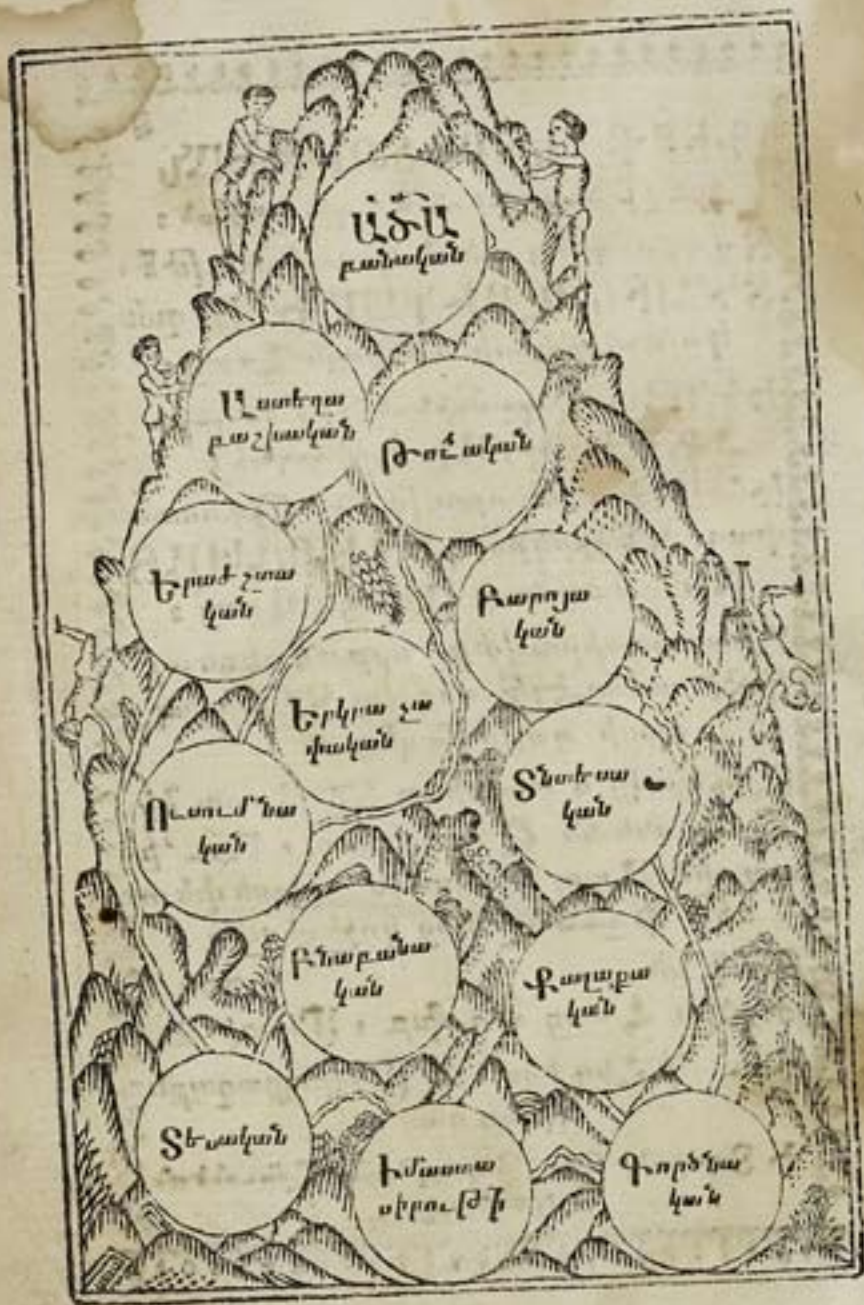 ԱԾԱ
բանական
Աստեղա
բաշխական
Թուական
Երաժշտա
կան
Բարոյա
կան
Երկրա չա
փական
Տնտեսա
կան
Ուսումնա
կան
Բնաբանա
կան
Քաղաքա
կան
Տեսական
Իմաստա
սիրութի
Գործնա
կան